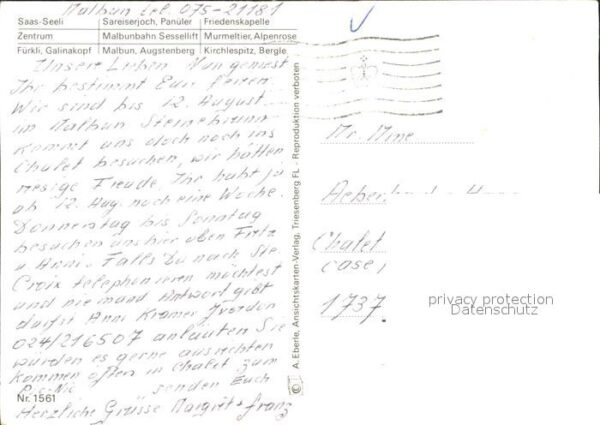 Malbun tel. 075-21181
Saas-Seeli Sareiserjoch, Panüler Friedenskapelle
Zentrum Malbunbahn Sessellift Murmeltier, Alpenrose
Fürkli, Galinakopf Malbun, Augstenberg Kirchlespitz, Bergle
Unsere Lieben Nun geniest
Ihr bestimmt Eure Ferien
Wir sind bis 12. August
im Malbun
Kommt uns doch noch ins
Chalet besuchen, wir hätten
riesige Freude. Ihr habt ja
ab 12. Aug. noch eine Woche.
Donnerstag bis Sonntag
besuchen uns hier oben Fritz
u Anni. Falls Du nach Ste
Croix telephonieren möchtest
und niemand Antwort gibt
darfst Anni Kramer Yverdon
024/216507 anläuten Sie
würden es gerne ausrichten
kommen öfters in Chalet zum
Pic-Nic senden Euch
Herzliche Grüsse Margrit + Franz
Nr. 1561
© A. Eberle, Ansichtskarten-Verlag, Triesenberg FL - Reproduktion verboten
Mr. Mme
Chalet
case,
1737
privacy protection
Datenschutz